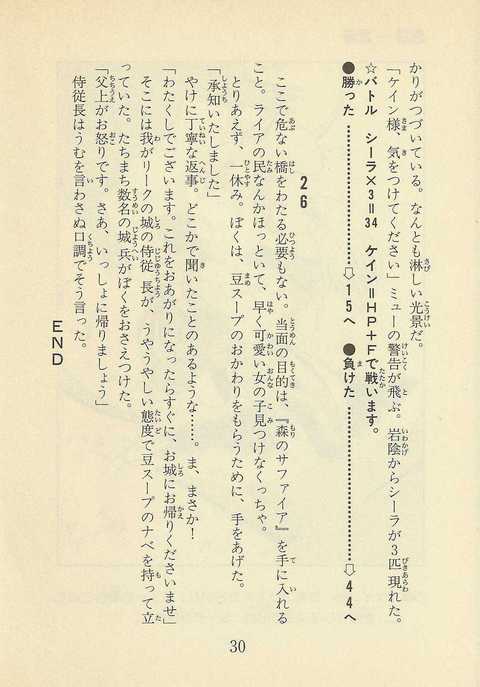 かりがつづいている。なんとも淋しい光景だ。
「ケイン様、気をつけてください」ミューの警告が飛ぶ。岩陰からシーラが3匹現れた。
☆バトル　シーラ×3＝34　ケイン＝HP＋Fで戦います。
●勝った………………⇨15へ　●負けた………………⇨44へ
26
ここで危ない橋をわたる必要もない。当面の目的は、『森のサファイア』を手に入れる
こと。ライアの民なんかほっといて、早く可愛い女の子見つけなくっちゃ。
とりあえず、一休み。ぼくは、豆スープのおかわりをもらうために、手をあげた。
「承知いたしました」
やけに丁寧な返事。どこかで聞いたことのあるような……。ま、まさか！
「わたくしでございます。これをおあがりになったらすぐに、お城にお帰りくださいませ」
そこには我がリークの城の侍従長が、うやうやしい態度で豆スープのナベを持って立
っていた。たちまち数名の城兵がぼくをおさえつけた。
「父上がお怒りです。さあ、いっしょに帰りましょう」
侍従長はうむを言わさぬ口調でそう言った。
END
30